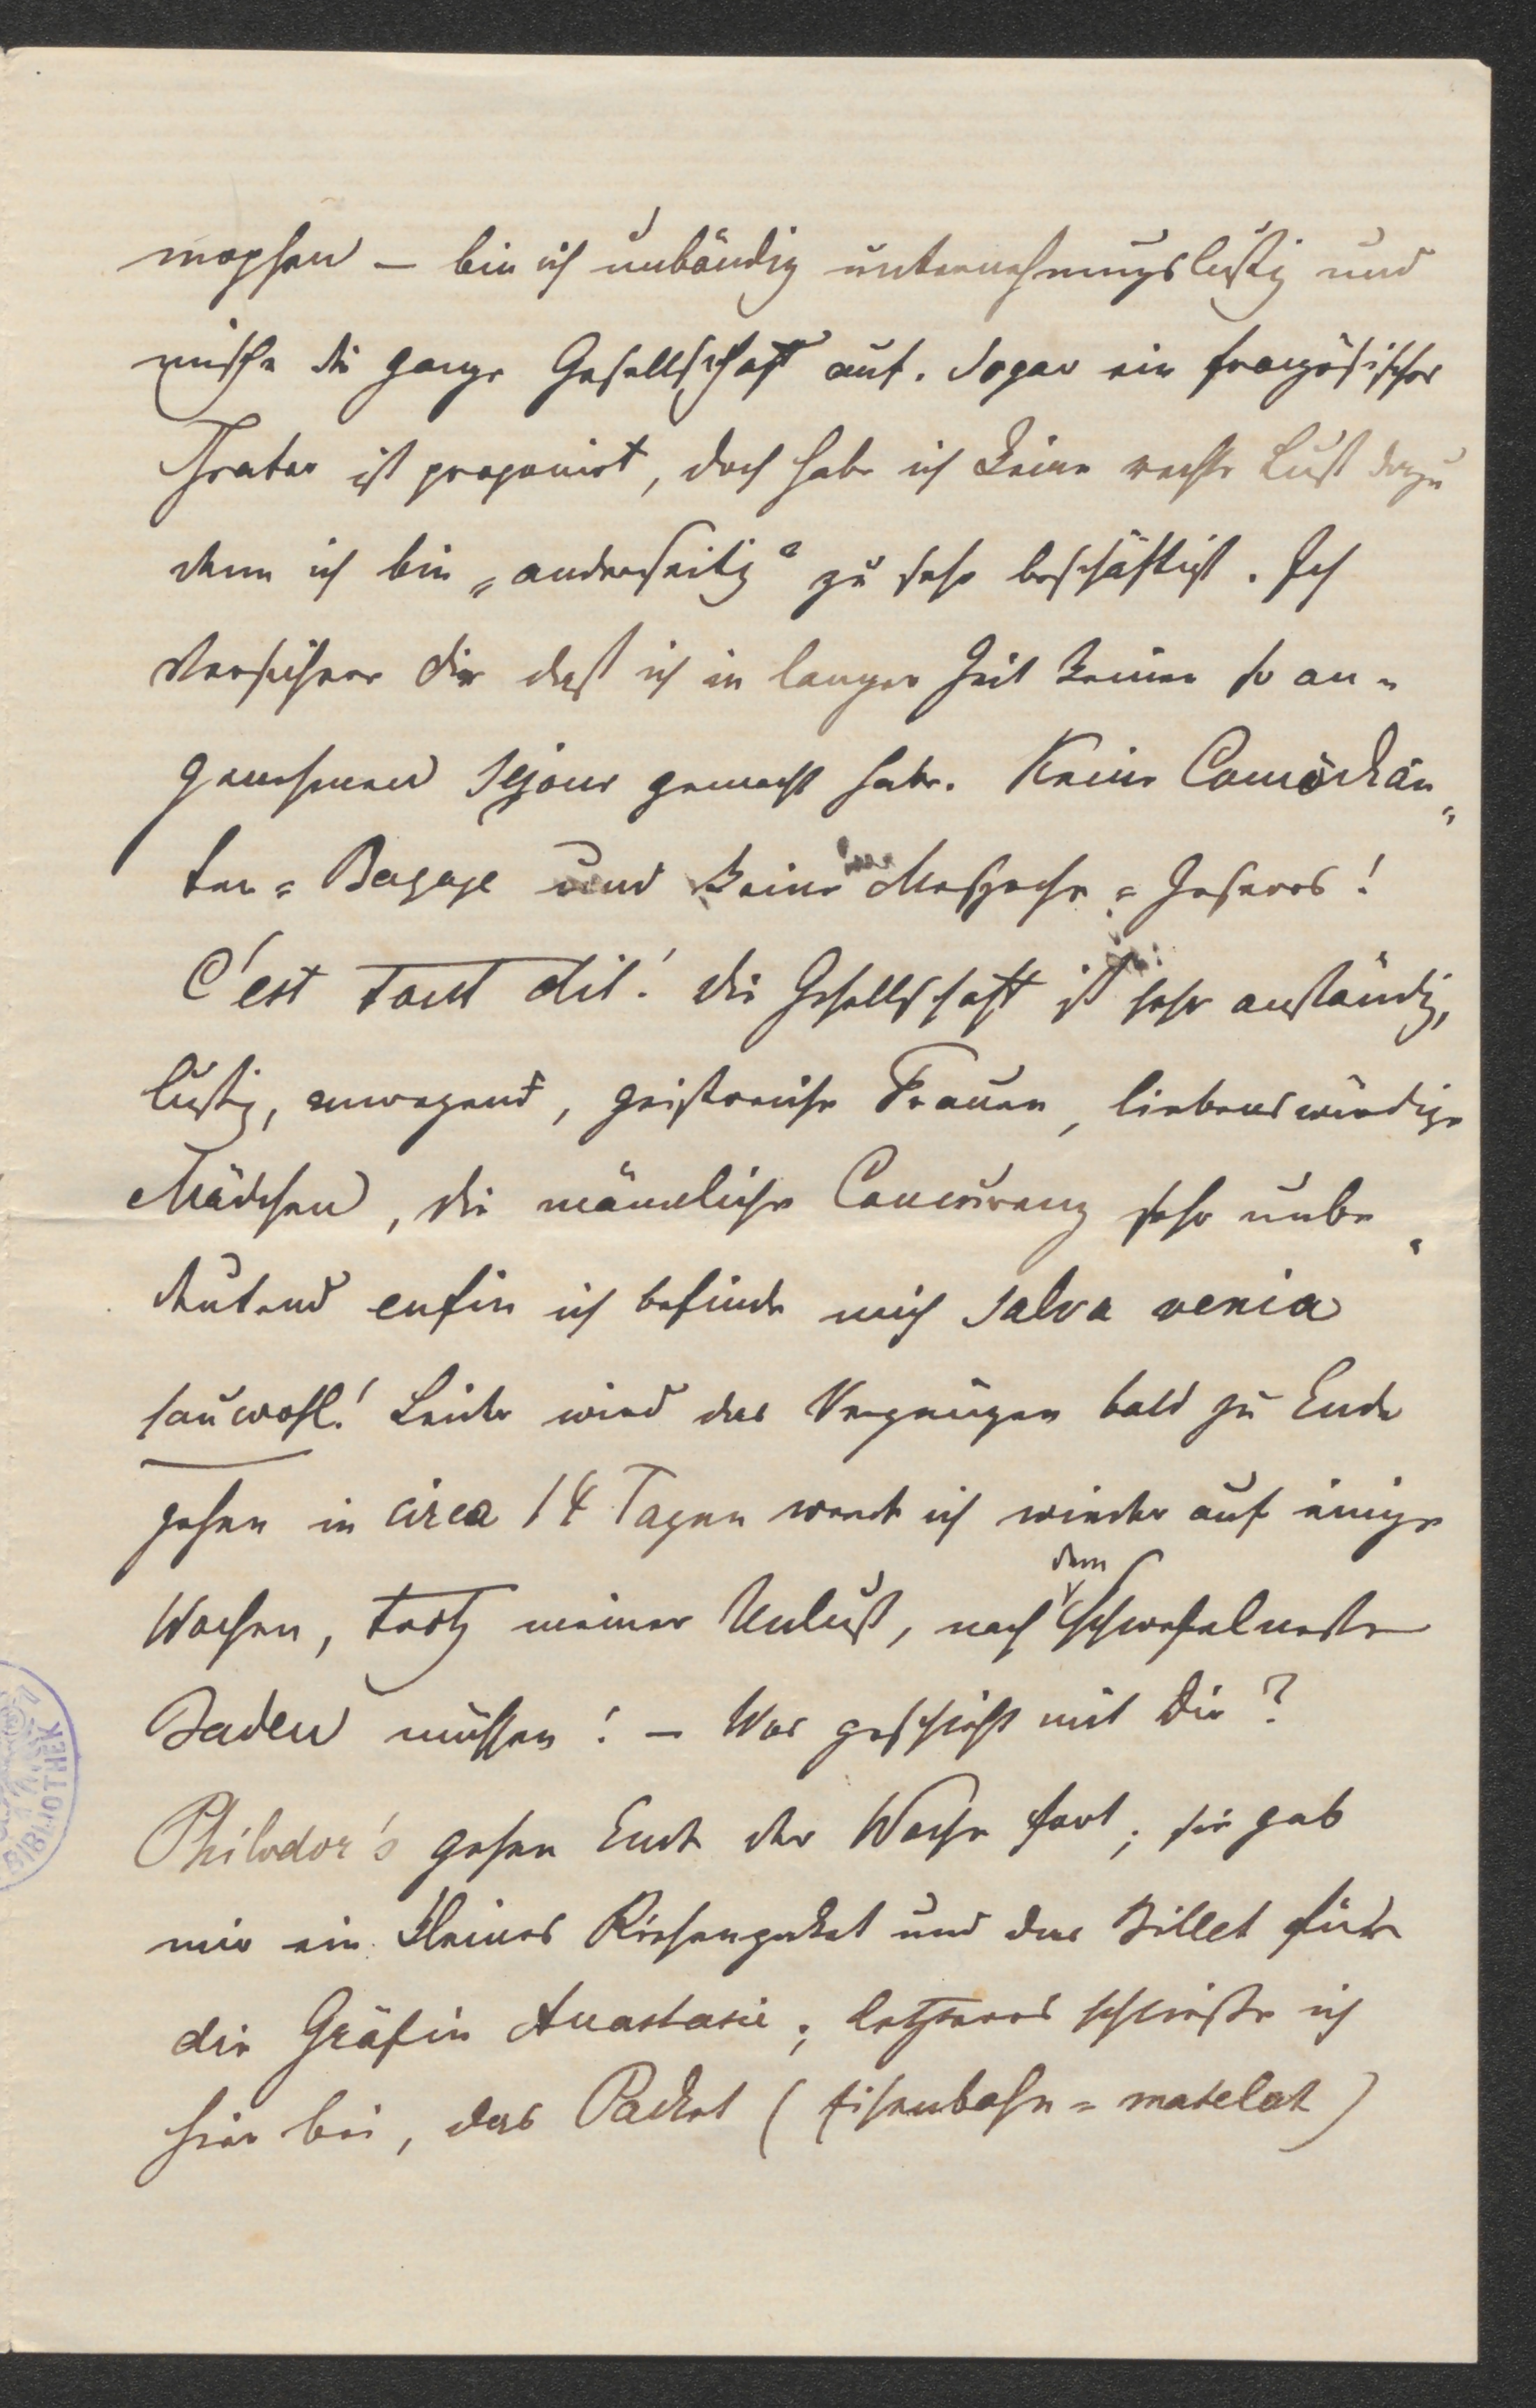 mopsen – bin ich unbändig unternehmungslustig und
mische die ganze Gesellschaft auf. Sogar ein französisches
Theater ist proponirt, doch habe ich keine rechte Lust dazu
denn ich bin „anderseitig“ zu sehr beschäftigt. Ich
versichere Dir daß ich in langer Zeit keinen so an=
genehmen Sejour gemacht habe. Keine Comödian=
ten=Bagage und keine Mespoche=Zeseres!
C'est tout dit! die Gesellschaft ist sehr anständig,
lustig, anregend, geistreiche Frauen, liebenswürdige
Mädchen, die männliche Concurenz sehr unbe=
deutend enfin ich befinde mich salva venia
sauwohl! Leider wird das Vergnügen bald zu Ende
gehen in circa 14 Tagen werde ich wieder auf einige
Wochen, trotz meiner Unlust, nach dem Schwefelneste
Baden müssen! – Was geschieht mit Dir?
Philodor's gehen Ende der Woche fort; sie gab
mir ein kleines Riesenpaket und das Billet für
die Gräfin Anastasie; letzteres schließe ich
hier bei, das Packet (Eisenbahn=matelat)
BIBLIOTHEK